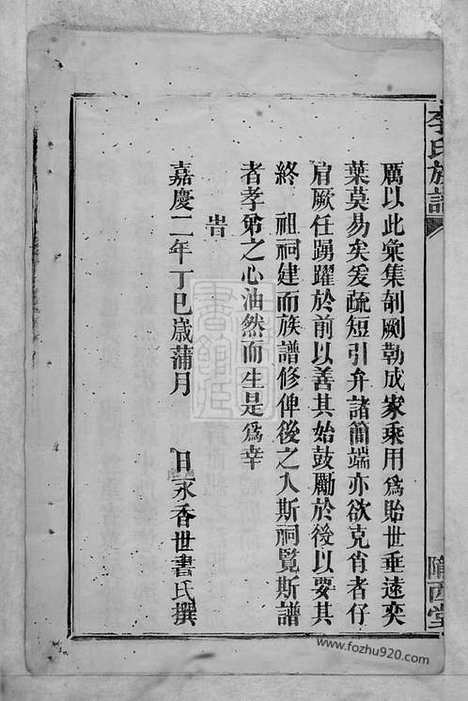 李氏族譜
隴西堂
厲以此彙集剞劂勒成家乘用為貽世垂遠奕
葉莫易矣爰疏短引弁諸簡端亦欲克肖者仔
肩厥任踴躍於前以善其始鼓勵於後以要其
終 祖祠建而族譜修俾後之入斯祠覽斯譜
者孝弟之心油然而生是為幸
旹
嘉慶二年丁巳歲蒲月 永香世書氏撰
www.fozhu920.com